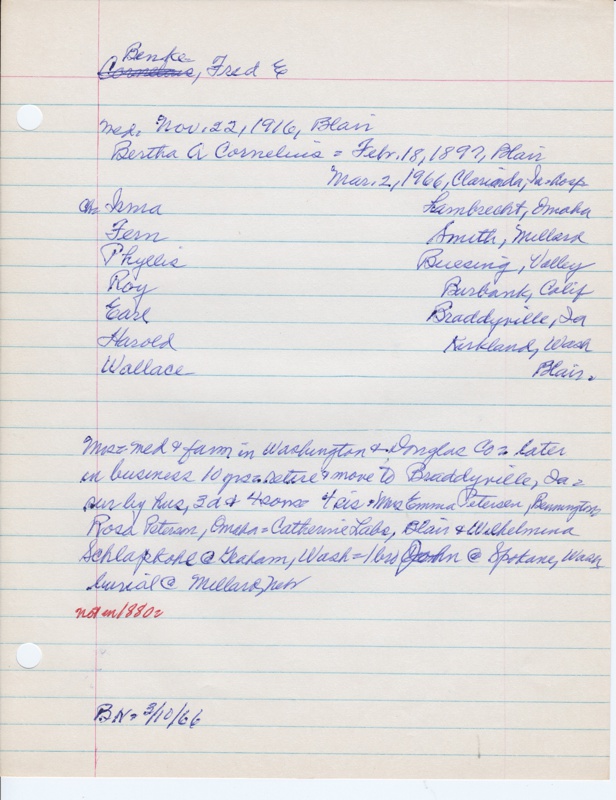 Benke
Cornelius, Fred E
Med. Nov. 22, 1916, Blair
Bertha A Cornelius = Febr. 18, 1897, Blair
Mar. 2, 1966, Clarinda, Ia-hosp
Ch= Irma Lambrecht, Omaha
Fern Smith, Millard
Phyllis Buesing, Valley
Roy Burbank, Calif
Earl Braddyville, Ia
Harold Kirkland, Wash
Wallace Blair=
Mrs= med & farm in Washington & Douglas Co= later
in business 10 yrs= retire & move to Braddyville, Ia=
sur by hus, 3d & 4 sons= 4 sis= Mrs Emma Petersen, Bennington,
Rosa Peterson, Omaha= Catherine Labs, Blair & Wilhelmina
Schlapkohl @ Graham, Wash= 1 bro John @ Spokane, Wash
burial @ Millard, Neb
not in 1880=
BN= 3/10/66